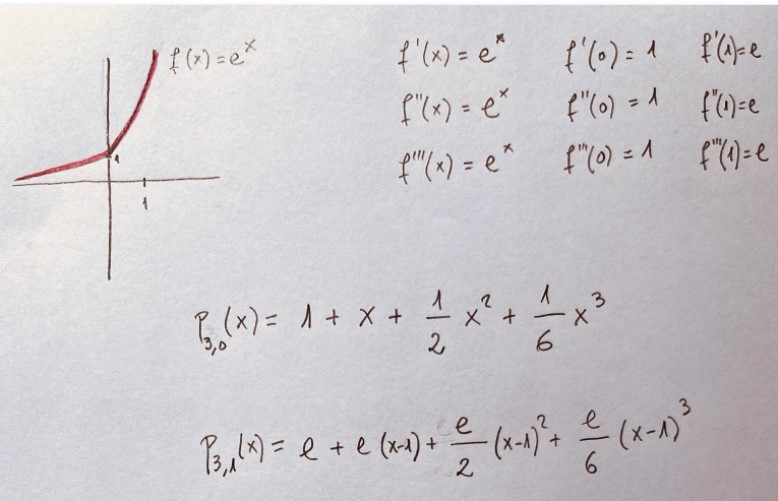 f(x) = eˣ
f'(x) = eˣ f'(0) = 1 f'(1)=e
f''(x) = eˣ f''(0) = 1 f''(1)=e
1
f'''(x) = eˣ f'''(0) = 1 f'''(1)=e
1
P₃,₀(x) = 1 + x + 1/2 x² + 1/6 x³
P₃,₁(x) = e + e (x-1) + e/2 (x-1)² + e/6 (x-1)³